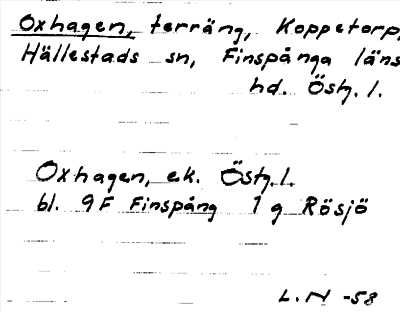 Oxhagen, terräng, Koppetorp,
Hällestads sn, Finspånga läns
hd. Östg. l.
Oxhagen, ek. Östg.l.
bl. 9F Finspång 1 g Rösjö
L.N -58